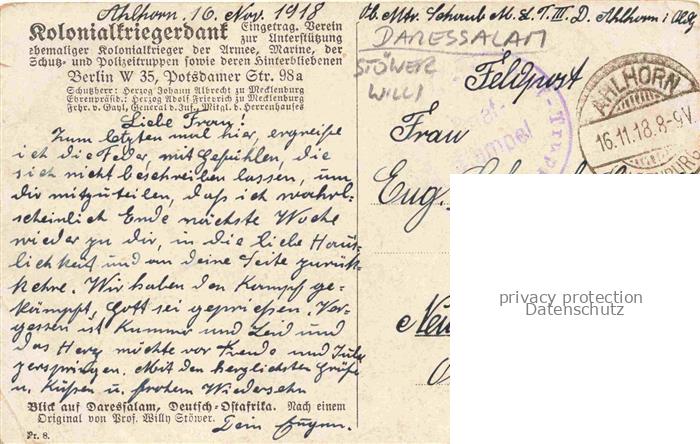 Ahlhorn, 16. Nov. 1918
Kolonialkriegerdank Eingetrag. Verein
zur Unterstützung
ehemaliger Kolonialkrieger der Armee, Marine, der
Schutz- und Polizeitruppen sowie deren Hinterbliebenen
Berlin W 35, Potsdamer Str. 98a
Schutzherr: Herzog Johann Albrecht zu Mecklenburg
Ehrenpräsid.: Herzog Adolf Friedrich zu Mecklenburg
Frhr. v. Gayl, General d. Inf., Mitgl. d. Herrenhauses
Liebe Frau!
Zum letzten mal hier, ergreife
ich die Feder, mit Gefühlen, die
sich nicht beschreiben lassen, um
dir mitzuteilen, daß ich wahr-
scheinlich Ende nächste Woche
wieder zu dir, in die liebe Häus-
lichkeit und an deine Seite zurück-
kehre. Wir haben den Kampf ge-
kämpft, Gott sei gepriesen. Ver-
gessen ist Kummer und Leid und
das Herz möchte vor Freude und
zerspringen. Mit den herzlichsten Grüße
u. Küßen u. frohem Wiedersehn
Dein Eugen.
Blick auf Daressalam, Deutsch-Ostafrika. Nach einem
Original von Prof. Willy Stöwer.
Pr. 8.
Ab. Mtr. Schaub M. L. T. III D. Ahlhorn i. Oldbg
DARESSALAM
STÖWER
WILLI
Feldpost
AHLHORN
16.11.18.8-9V.
Frau
Eug.
privacy protection
Datenschutz